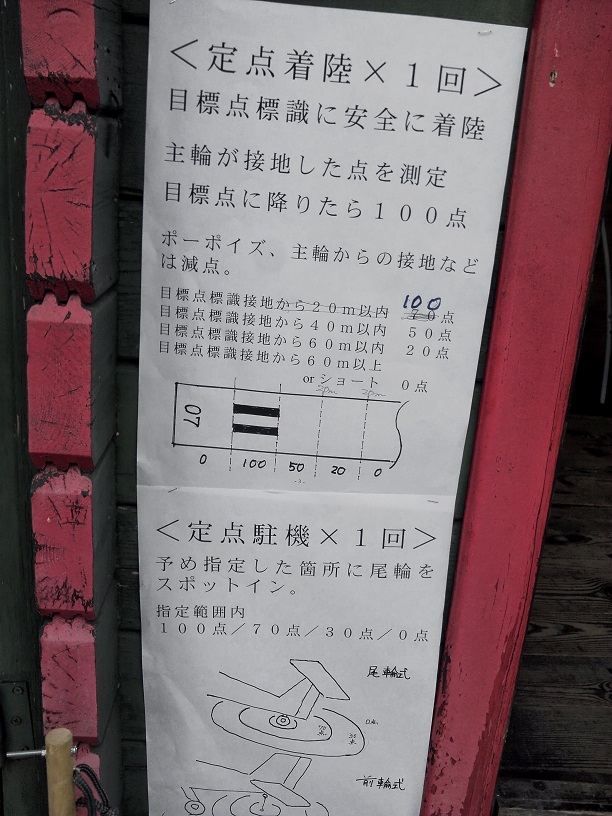 ＜定点着陸×１回＞
目標点標識に安全に着陸
主輪が接地した点を測定
目標点に降りたら１００点
ポーポイズ、主輪からの接地など
は減点。
目標点標識接地から２０ｍ以内 100 ７０点
目標点標識接地から４０ｍ以内 ５０点
目標点標識接地から６０ｍ以内 ２０点
目標点標識接地から６０ｍ以上
orショート ０点
07
0 100 50 20 0
-3-
＜定点駐機×１回＞
予め指定した箇所に尾輪を
スポットイン。
指定範囲内
１００点／７０点／３０点／０点
尾輪式
前輪式